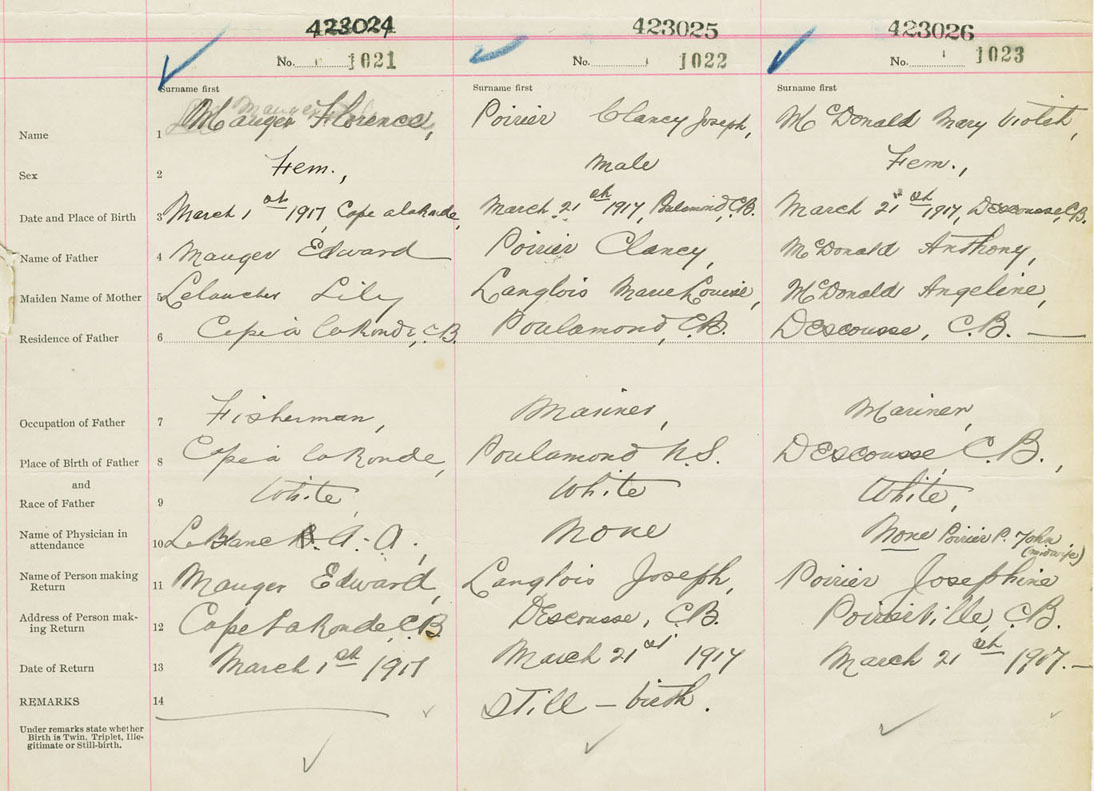 423024 423025 423026
No. 1021 No. 1022 No. 1023
Surname first Surname first Surname first
Name 1 Mauger Florence, Poirier Clancy Joseph, McDonald Mary Violet,
Sex 2 Fem., Male Fem.,
Date and Place of Birth 3 March 1st 1917, Cape a la Ronde, March 21st 1917, C.B. March 21st 1917, Descousse, C.B.
Name of Father 4 Mauger Edward Poirier Clancy, McDonald Anthony,
Maiden Name of Mother 5 Lily Langlois Marie Louise, McDonald Angeline,
Residence of Father 6 Cape à la Ronde, C.B. Poulamond, C.B. Descousse, C.B. —
Occupation of Father 7 Fisherman, Mariner, Mariner,
Place of Birth of Father 8 Cape à la Ronde, Poulamond N.S. Descousse, C.B.,
and
Race of Father 9 White, White White,
Name of Physician in
attendance 10 LeBlanc A. A., None None Poirier P. John
(midwife)
Name of Person making
Return 11 Mauger Edward, Langlois Joseph, Poirier Josephine
Address of Person mak-
ing Return 12 Cape La Ronde, C.B. Descousse, C.B. C.B.
Date of Return 13 March 1st 1917 March 21st 1917 March 21st 1917. —
REMARKS 14 Still – birth.
Under remarks state whether
Birth is Twin, Triplet, Ille-
gitimate or Still-birth.